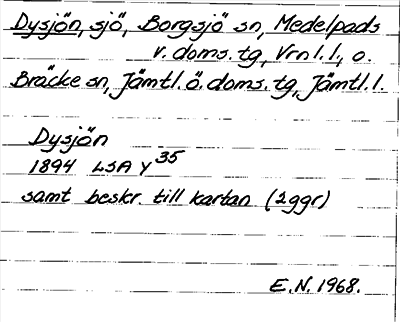 Dysjön, sjö, Borgsjö sn, Medelpads
v. doms. tg, Vrnl. l., o.
Bräcke sn, Jämtl. ö. doms. tg, Jämtl. l.
Dysjön
1894 LSA Y 35
samt beskr. till kartan (2ggr)
E.N. 1968.